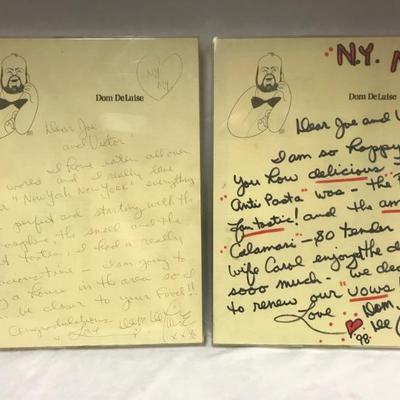 N.Y.
N.Y.
Dom DeLuise
Dear Joe
and Victor
I have eaten all over
world and I really love
"New York New York" everything
perfect and starting with the
the smell and the
I had a really
time. I am going to
a house in the area so I
be closer to your food!!
Congratulations
Love Dom
N.Y.
Dom DeLuise
Dear Joe and
I am so happy
you how delicious
"Anti Pasta" was - the
Fantastic! and the
Calamari - so tender
wife Carol enjoyed the
sooo much - we
to renew our vows!
Love Dom
'98